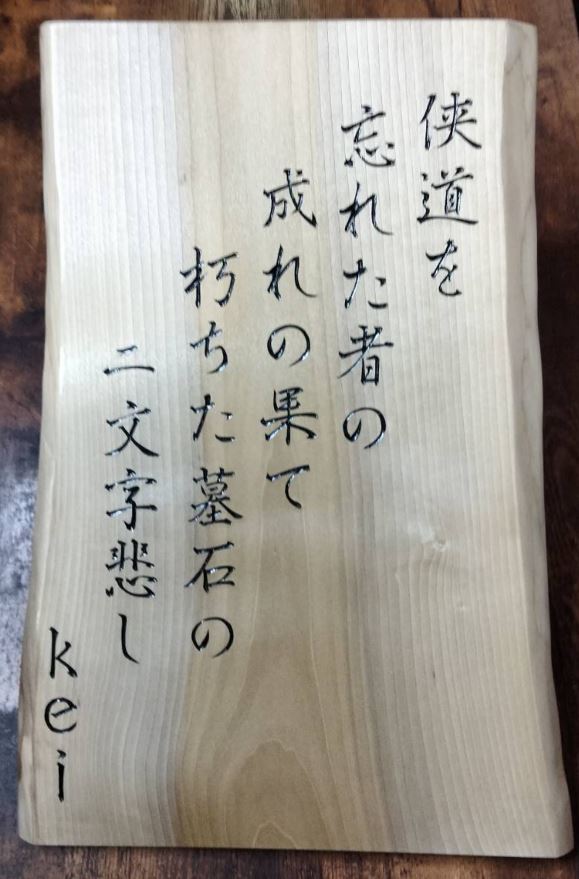 侠道を
忘れた者の
成れの果て
朽ちた墓石の
二文字悲し
kei